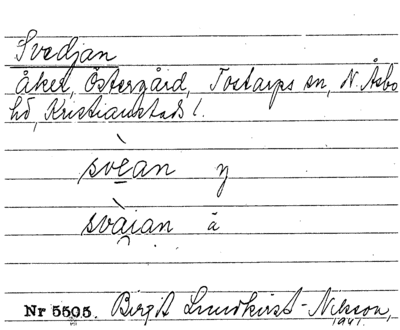 Svedjan
Åker, Östergård, Tostarps sn, N. Åsbo
hd, Kristianstads l.
svèan y
svàian ä
Nr 5505. Birgit Lundkvist-Nilsson,
1941.